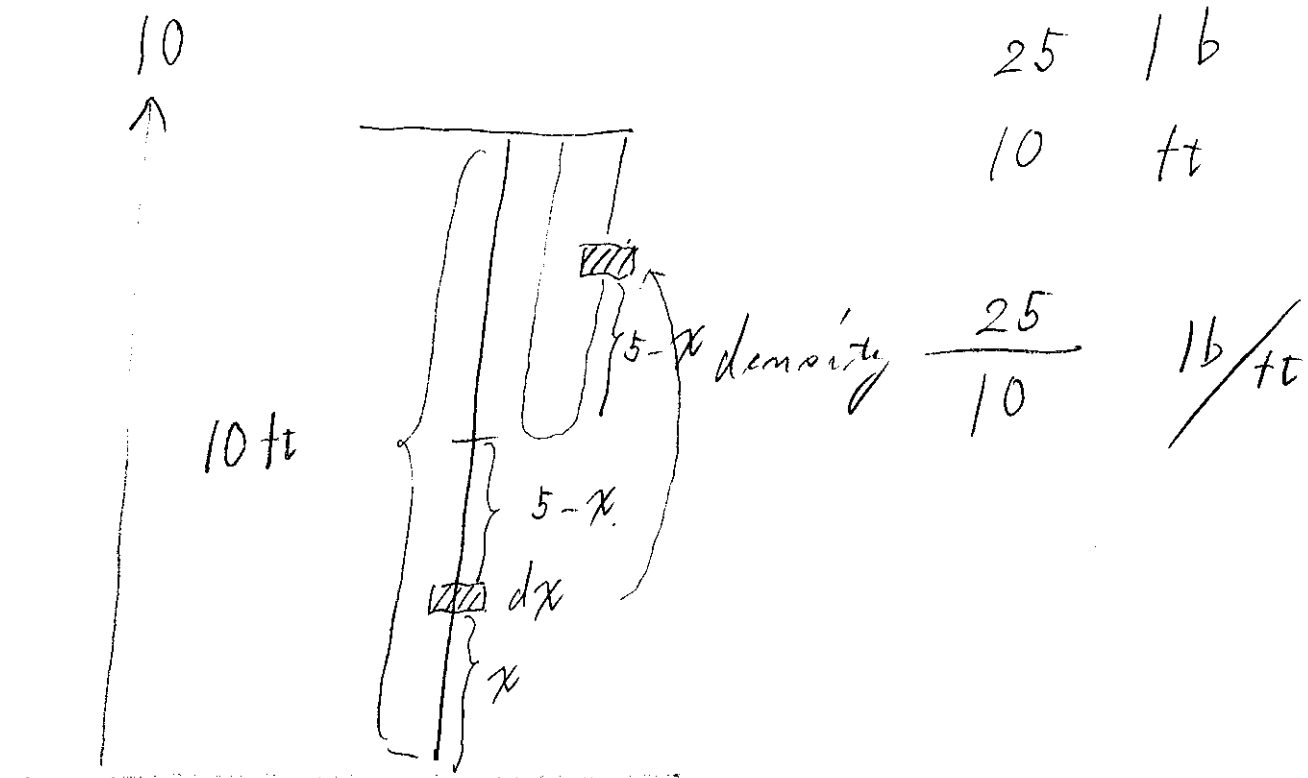 10
25 lb
10 ft
5-x
density 25/10 lb/ft
10 ft
5-x
dx
x